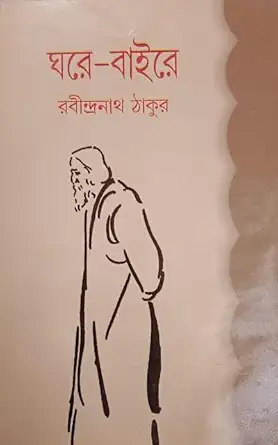 ঘরে-বাইরে
রবীন্দ্রনাথ ঠাকুর